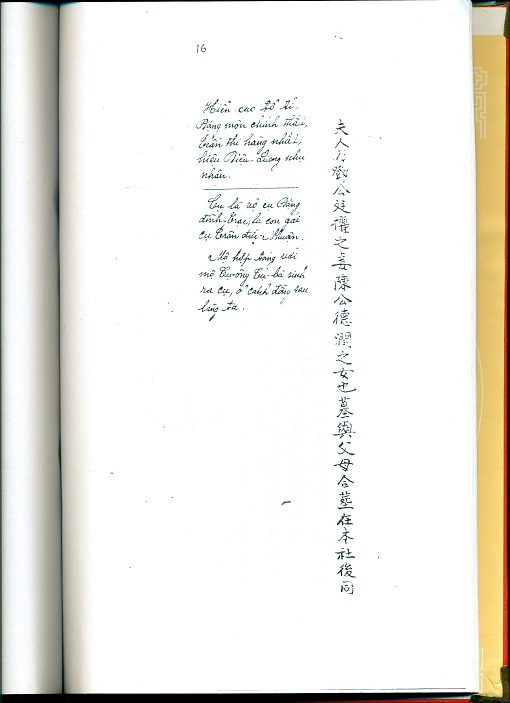 16
Hiển cao tổ tỉ,
Đặng môn chính thất,
Trần thị hàng nhất,
hiệu Diệu Quang nhu
nhân.
Cụ là vợ cụ Đặng
đình Trạc, là con gái
cụ Trần đức Nhuận.
Mộ hợp táng với
mộ bà sinh
ra cụ, ở cánh đồng sau
làng ta.
夫人乃鄧公廷濯之妻陳公德潤之女也墓與父母合葬在本社後同